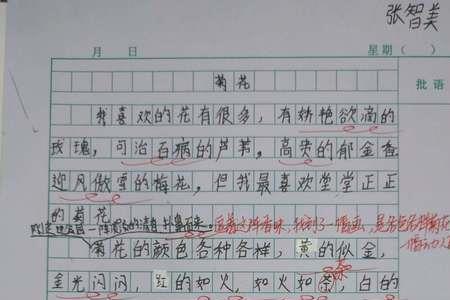 张智美
月 日 星期（ ）
菊花
批语
我喜欢的花有很多，有娇艳欲滴的
玫瑰，可治百病的芦荟，高贵的郁金香
迎风傲雪的梅花，但我最喜欢堂堂正正
的菊花
一阵 的清香扑鼻而来。
菊花的颜色各种各样，黄的似金，
金光闪闪，红的如火，如火如荼，白的